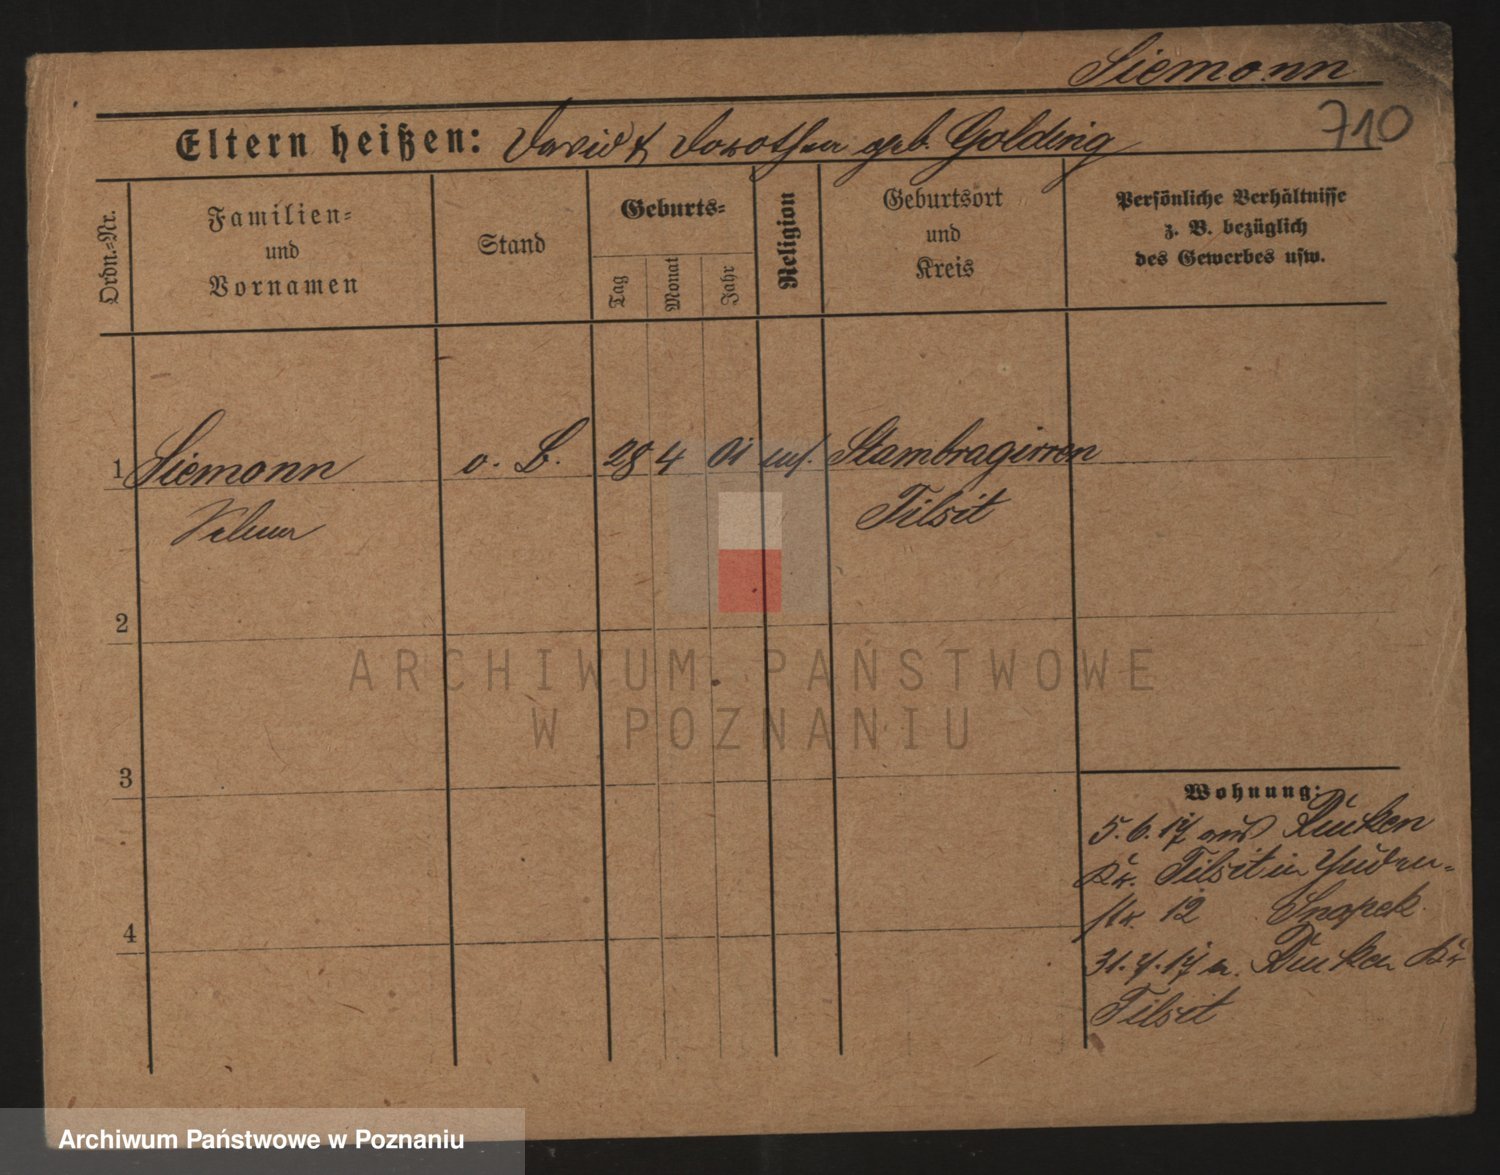 Siemonn
710
Eltern heißen: David & Dorothea geb. Golding
Ordn.=Nr.
Familien=
und
Vornamen
Stand
Geburts=
Tag
Monat
Jahr
Religion
Geburtsort
und
Kreis
Persönliche Verhältnisse
z. B. bezüglich
des Gewerbes usw.
1 Siemonn o. B. 28 4 01 ev. Stambragirren
Tilsit
2
3
4
Wohnung:
5.6.17 aus Rucken
Kr. Tilsit in Juden=
str. 12
31.7.17 n. Rucken Kr
Tilsit
ARCHIWUM PAŃSTWOWE
W POZNANIU
Archiwum Państwowe w Poznaniu